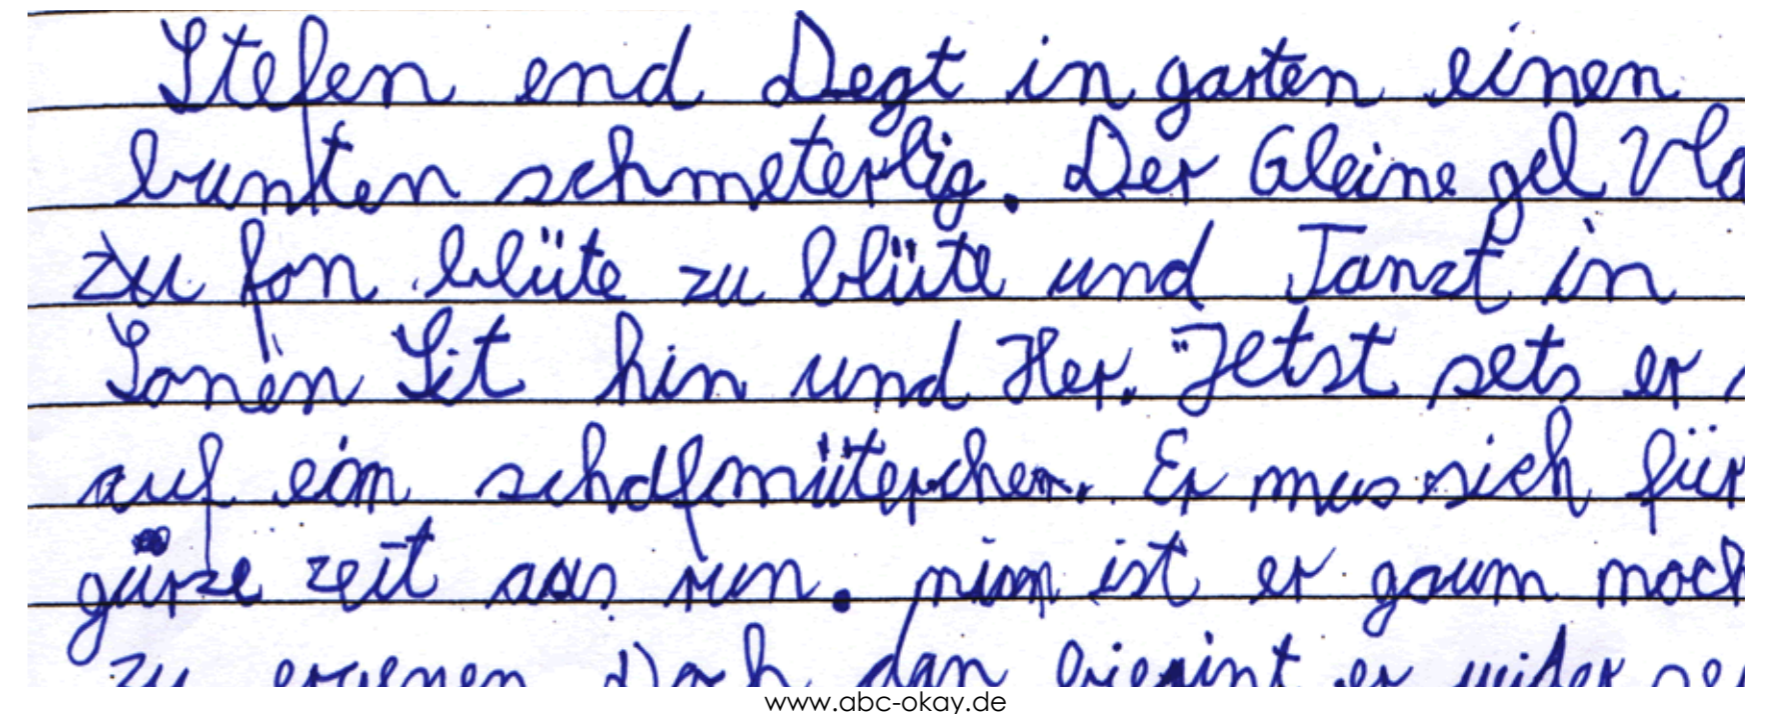 Stefen end Degt in garten einen
bunten schmeterlig. Der Gleine gel
zu fon blüte zu blüte und Tanzt in
Sonen Sit hin und Her. Jetst sets er
auf ein schdfmüterchen. Er mus sich für
gürze zeit aus run. nun ist er gaum noch
zu erwenen Doch dan biegint er wider
www.abc-okay.de